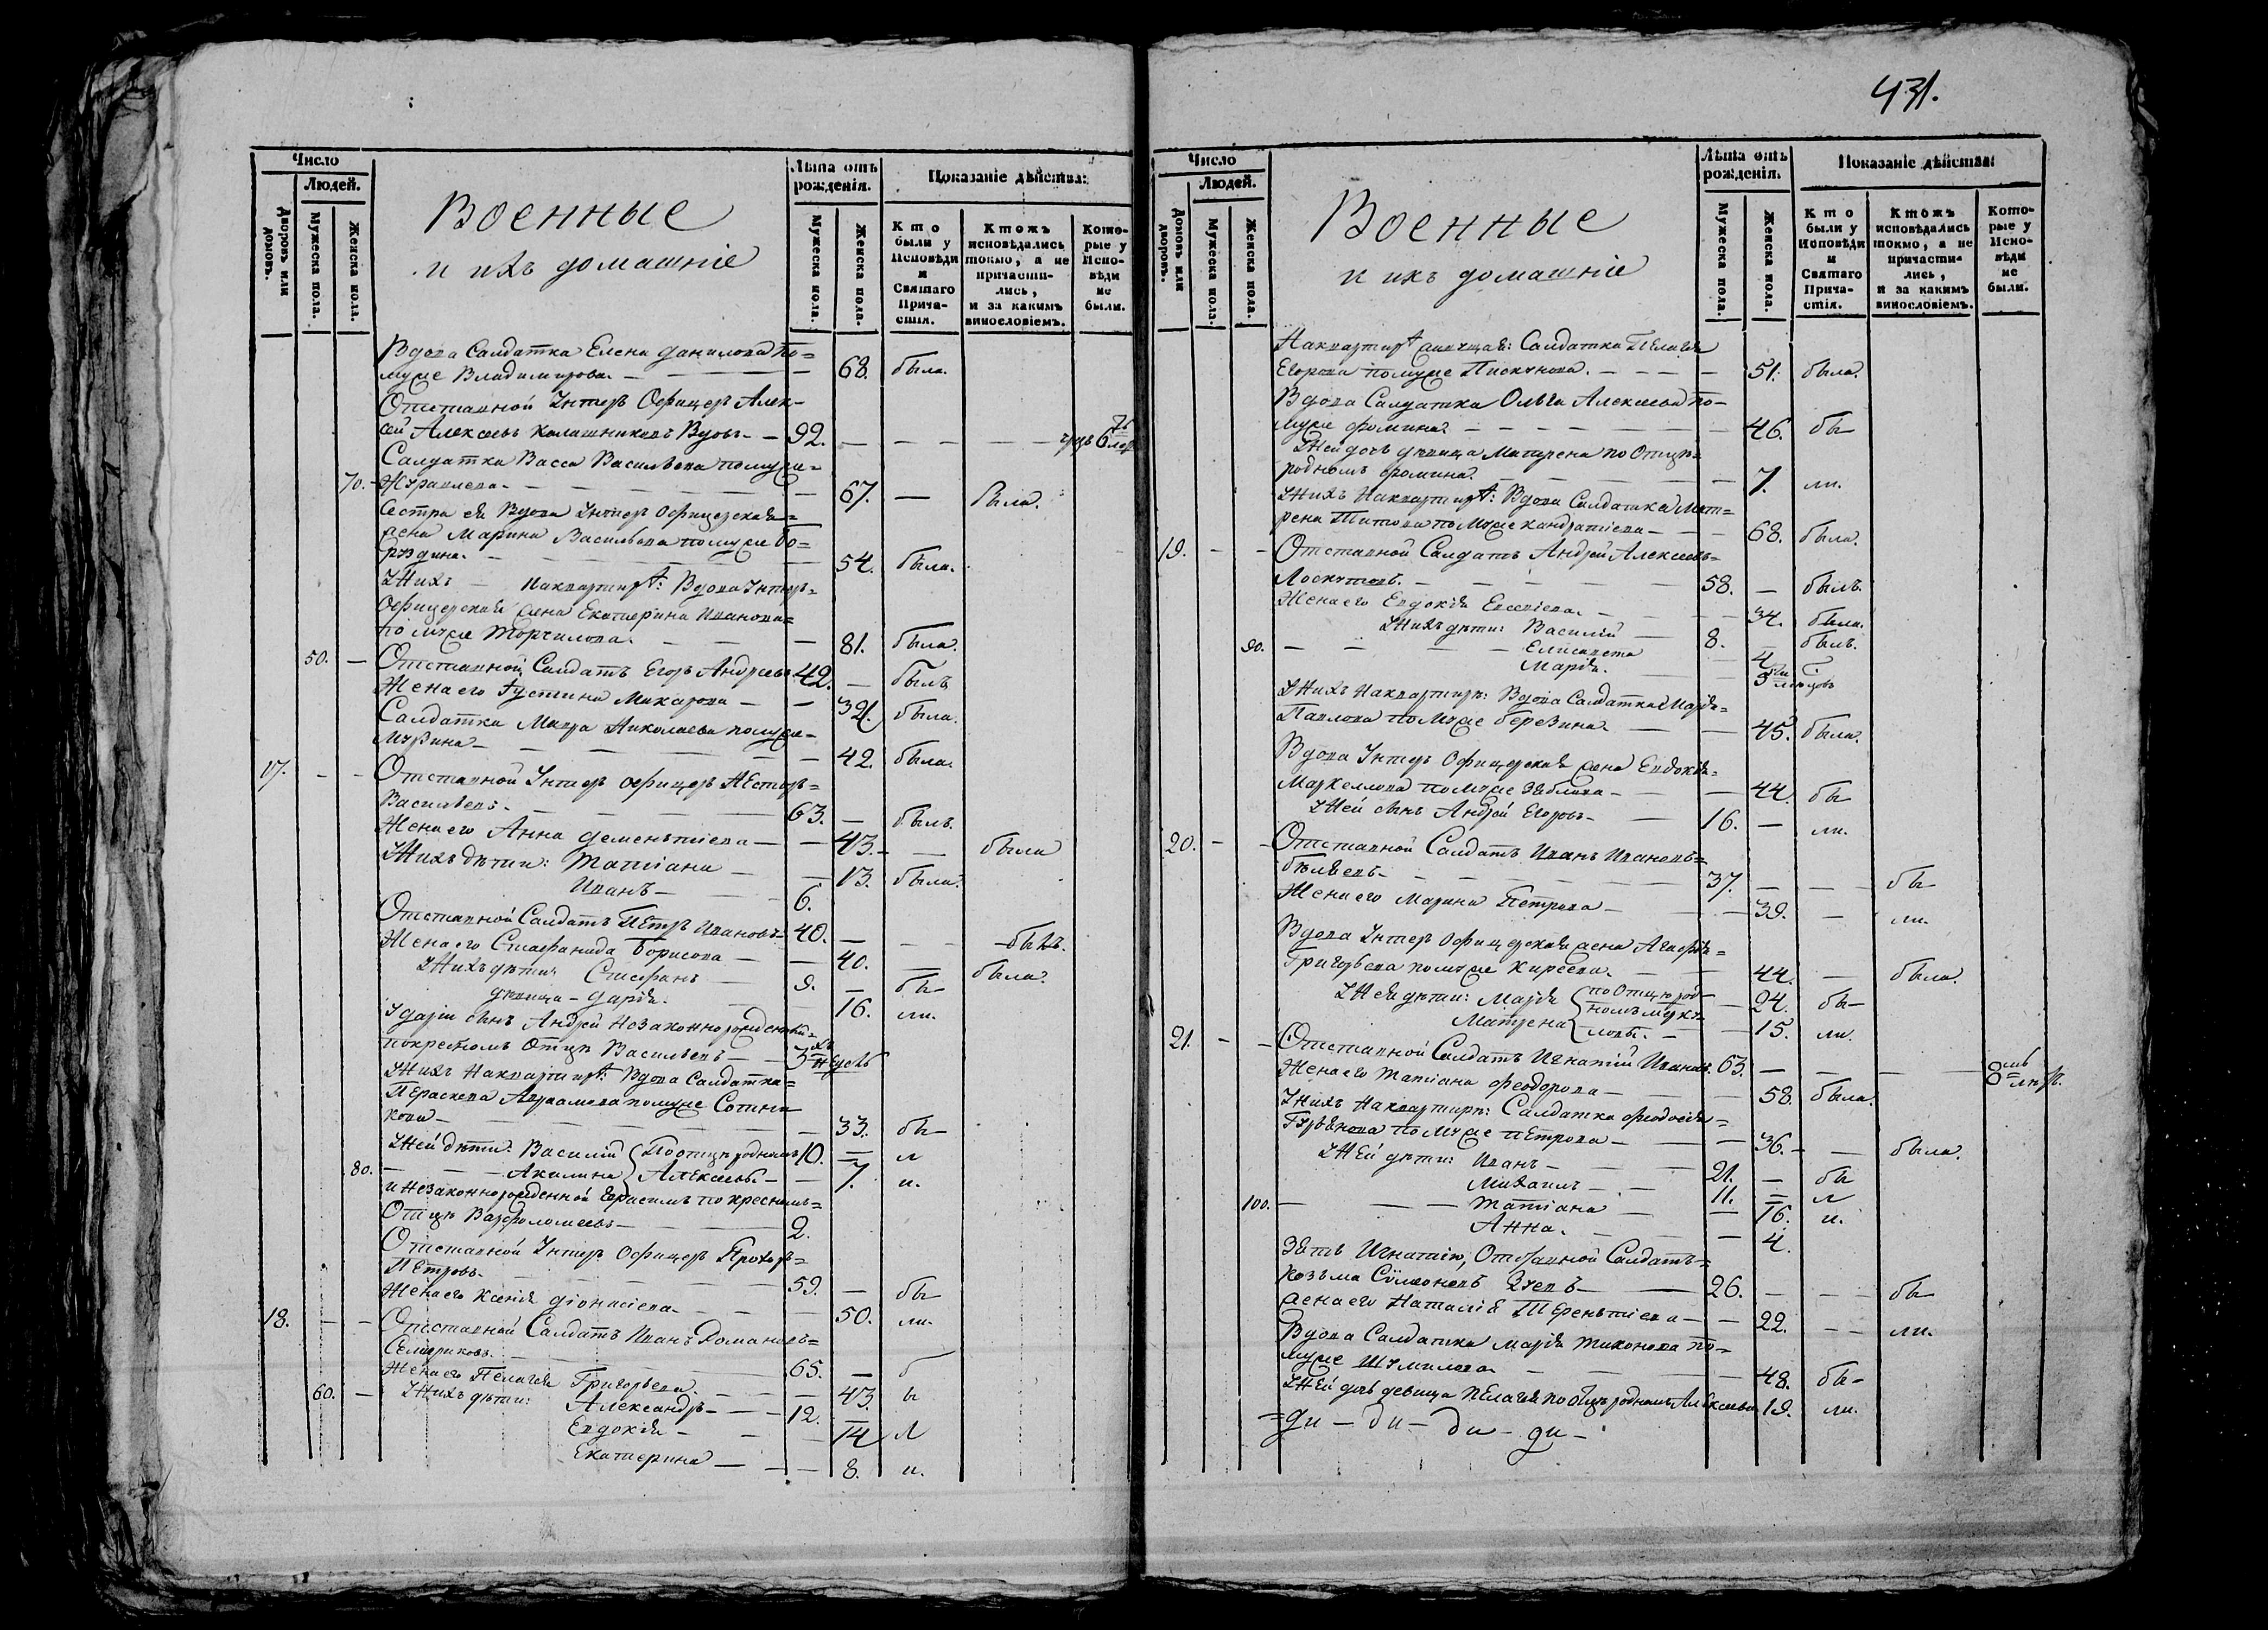 431.
Число
Людей.
Дворовъ или домовъ.
Мужеска пола.
Женска пола.
Военные
и ихъ домашніе
Лѣта отъ рожденія.
Мужеска пола.
Женска пола.
Показаніе дѣйства:
Кто были у Исповѣди и Святаго Причастія.
Ктожъ исповѣдались токмо, а не причастились, и за какимъ винословіемъ.
Которые у Исповѣди не были.
Вдова Салдатка Елена Данилова по=
муже Владимирова. — — — 68. была.
Отставной Унтеръ Офицеръ Алек-
сей Алексеевъ Калашниковъ Вдовъ — 92. — — — —
Салдатка Васса Васильева по муже=
70. Журавлева. — — — 67. — была.
Сестра ея Вдова Унтеръ Офицерская=
жена Марина Васильева по муже Бо=
рздина. — — — 54. была.
У Нихъ — на квартирѣ: Вдова Унтеръ=
Офицерская жена Екатерина Иванова=
по муже Торчилова. — — — 81. была.
50. — Отставной Салдатъ Егоръ Андреевъ 42. — былъ
Жена его Густина Макарова — — была.
Салдатка Мавра Николаева по муже=
Мурзина — — — 42. была.
17. — — Отставной Унтеръ Офицеръ Нестеръ=
Васильевъ. — — 63. — былъ.
Жена его Анна Дементиева — — 43. — была
У Нихъ дѣти: Татиана — — 13. была.
Иванъ — — 6.
Отставной Салдатъ Петръ Ивановъ 40. — — — былъ.
Жена его Стефанида Борисова — — 40. — была.
У Нихъ дѣти: Стефанъ — 9. — бы-
девица — Дарія. — 16. ли.
У Даріи сынъ Андрей незаконнорожденный=
по крестномъ Отцѣ Васильевъ — 3хъ недѣль
У Нихъ на квартирѣ: Вдова Салдатка=
Параскева Авраамова по муже Сотни
кова — — — 33. бы-
У Ней дѣти: Василій По отцѣ родномъ 10. — л
80. — — — Акилина Алексеевы. — 7. и.
и незаконнорожденной Герасимъ по крестномъ=
Отцѣ Варфоломеевъ — — 2.
Отставной Унтеръ Офицеръ Прохоръ=
Петровъ. — — — 59. — бы-
Жена его Ксенія Діонисіева. — — 50. ли.
18. — — Отставной Салдатъ Иванъ Романовъ=
Семериковъ. — — 65. — б
Жена его Пелагея Григорьева. — — 43. ы
60. — У Нихъ дѣти: Александръ — — 12. —
Евдокія — — 14 л
Екатерина — — 8. и.
Число
Людей.
Домовъ или дворовъ.
Мужеска пола.
Женска пола.
Военные
и ихъ домашніе
Лѣта отъ рожденія.
Мужеска пола.
Женска пола.
Показаніе дѣйства:
Кто были у Исповѣди и Святаго Причастія.
Ктожъ исповѣдались токмо, а не причастились, и за какимъ винословіемъ.
Которые у Исповѣди не были.
На квартирѣ живущая: Салдатка Пелагея
Егорова по муже Пискунова. — — — 51. была.
Вдова Салдатка Ольга Алексеева по-
муже Фомина. — — — 46. бы-
У Ней дочь девица Матрена по Отцѣ=
родномъ Фомина. — — 7. ли.
У Нихъ на квартирѣ: Вдова Салдатка Мат=
рена Титова по Муже Кандратіева — — 68. была.
19. — — Отставной Салдатъ Андрей Алексеевъ=
Лоскутовъ. — — — 58. — былъ.
Жена его Евдокія Евсевіева. — — 34. была.
У Нихъ дѣти: Василій — 8. — былъ.
90. — — — Елисавета — 4
Марія. —
У Нихъ на квартирѣ: Вдова Салдатка Марія=
Павлова по Муже Березина. — — 45. была.
Вдова Унтеръ Офицерская жена Евдокія=
Маркеллова по Муже Зяблова — — 44. бы
У Ней сынъ Андрей Егоровъ — 16. — ли.
20. — — Отставной Салдатъ Иванъ Ивановъ=
Бѣляевъ — — 37. — — бы-
Жена его Марина Петрова — — 39. — ли.
Вдова Унтеръ Офицерская жена Агафія=
Григорьева по муже Киреева. — — 44. — была.
У Нея дѣти: Марія по Отцѣ род- — 24. бы-
Матрена — 15. ли.
21. — — Отставной Салдатъ Игнатій Ивановъ. 63. — — —
Жена его Татіана Феодорова — — 58. была.
У Нихъ на квартирѣ: Салдатка Феодосія=
Гурьянова по Муже Петрова — — 36. — была.
У Ней дѣти: Иванъ — — 21. — бы
Михаилъ — — 11. — л
100. — — — Татіана — — 16. и.
Анна. — — 4.
Зять Игнатію, Отставной Салдатъ=
Козьма Сүмеоновъ Зуевъ — 26. — — бы-
жена его Наталія Терентіева — — 22. — — ли.
Вдова Салдатка Марія Тихонова по-
муже Шумилова — — 48. бы-
У Ней дочь девица Пелагея по отцѣ родномъ Алексеева 19. ли.
=ди — ди — ди — ди —